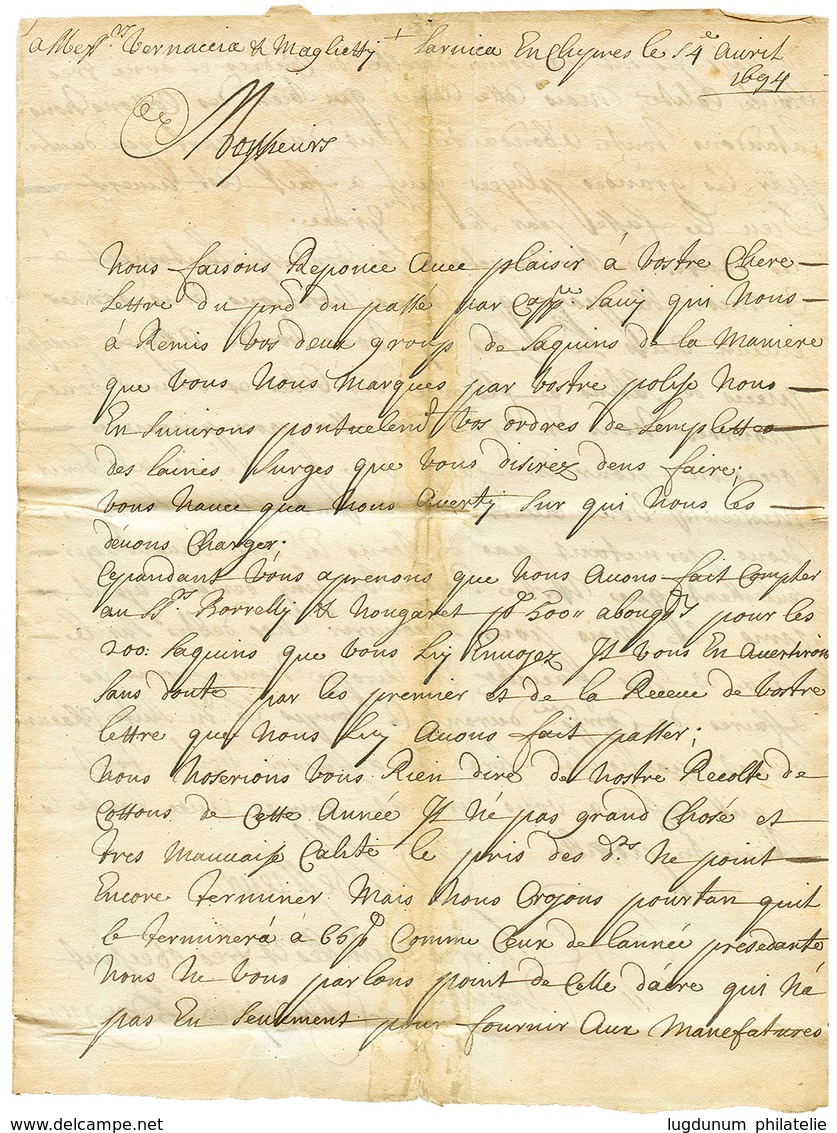 a Mess.rs Vernaccia & Magliettj + Larnica En Chypres le 14e Avril
1694
Messieurs
Nous faisons Reponce Avec plaisir à Vostre Chere
Lettre du prd du passé par Capp.ne Sauj qui Nous
à Remis Vos deux group de Saquins de la Maniere
que Vous Nous Marques par Vostre polise Nous
En Suivrons pontuelemt Vos ordres de Lemplette
des laines Surges que Vous disirez dens faire;
Vous Navce qua Nous Avertj Sur qui Nous les
devons Charger;
Cepandant Vous aprenons que Nous Avons fait Compter
au Srs Borrellj & Nongaret po 500 abouqs pour les
200: Saquins que Vous Luj Envojez Jl Vous En Avertirons
Sans doute par les premier et de la Receue de Vostre
lettre que Nous Luj Avons fait passer;
Nous Noserions Vous Rien dire de Nostre Recolte de
Cottons de Cette Année Jl né pas grand Chose et
tres Mauvaise Calité le pris des d.rs Ne point
Encore terminer Mais Nous Crojons pourtan quil
le terminerà à 66 po Comme Ceux de lannée présedante
Nous Ne Vous parlons point de Celle dacre qui Na
pas Eu Seulement pour fournir Aux Manefatures
www.delcampe.net
lugdunum philatelie